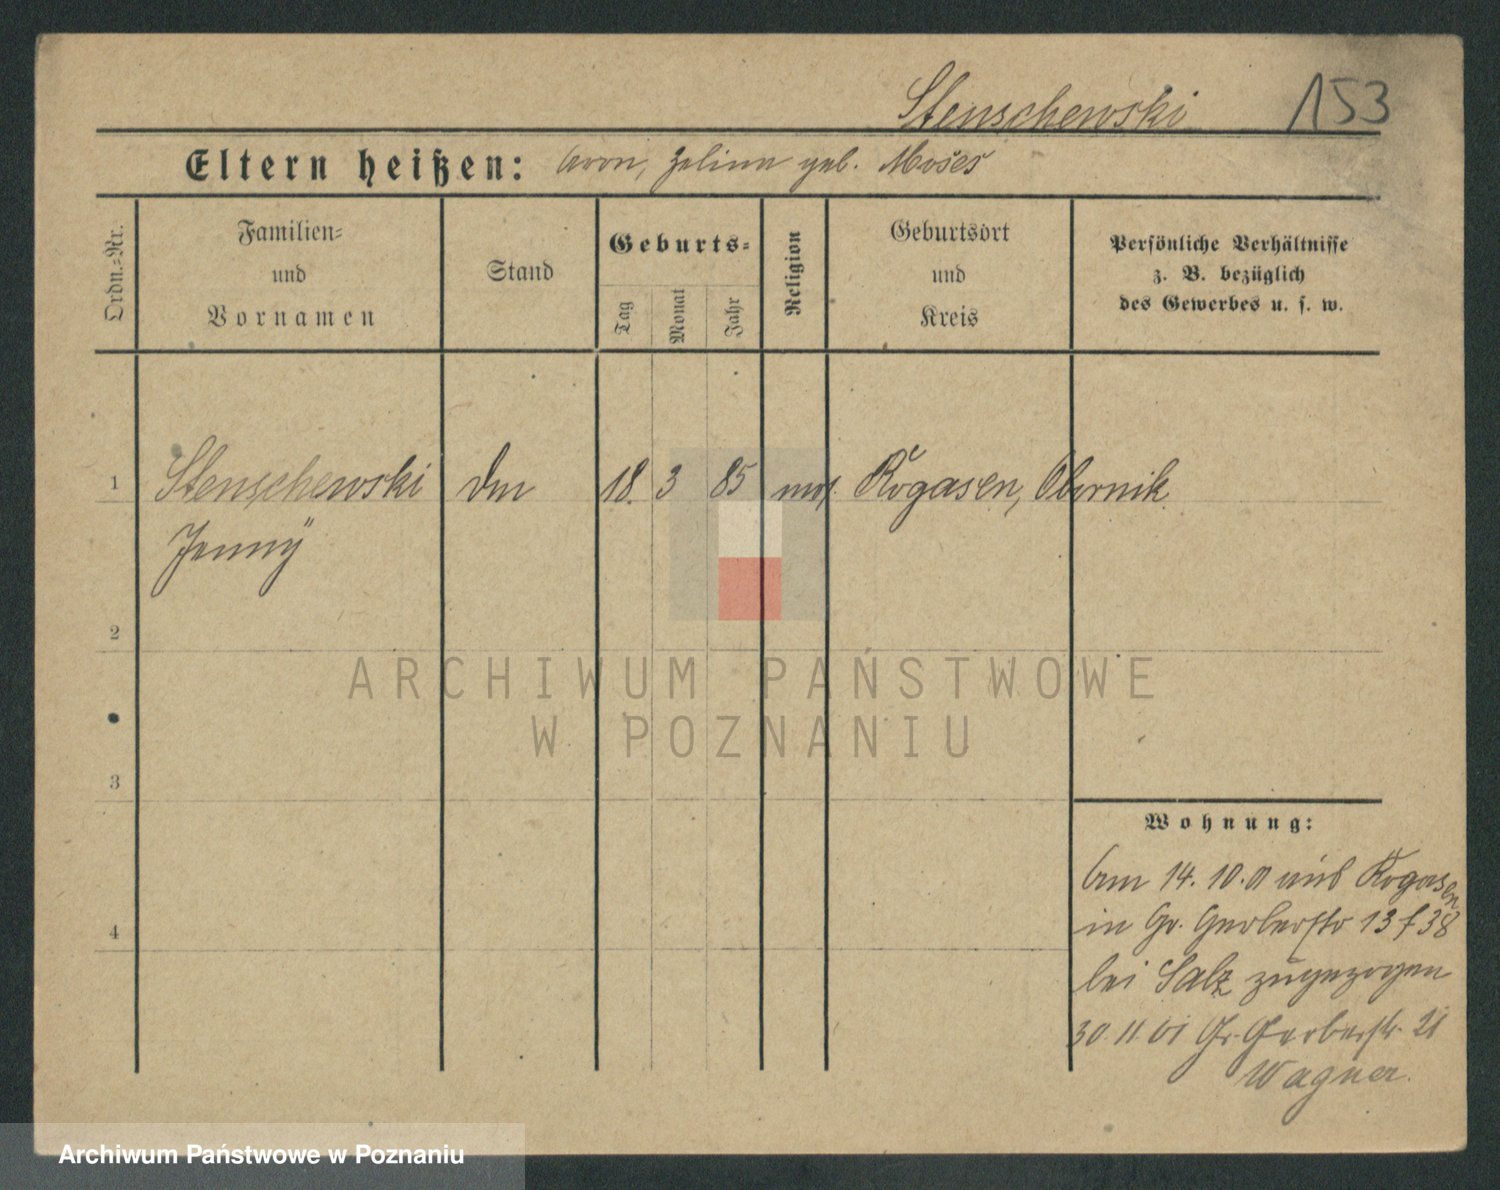 Stenschewski 153
Eltern heißen: Aron, Zelina geb. Moses
Ordn.-Nr.
Familien-
und
Vornamen
Stand
Geburts-
Tag
Monat
Jahr
Religion
Geburtsort
und
Kreis
Persönliche Verhältnisse
z. B. bezüglich
des Gewerbes u. s. w.
1 Stenschewski 18. 3 85 mos. Rogasen, Obornik
Jenny
2
3
4
ARCHIWUM PAŃSTWOWE
W POZNANIU
Wohnung:
Am 14. 10. 01 aus Rogasen
in Gr. Gerberstr 13 f 38
bei Salz zugezogen
30 11 01 Gr. Gerberstr. 21
Wagner.
Archiwum Państwowe w Poznaniu